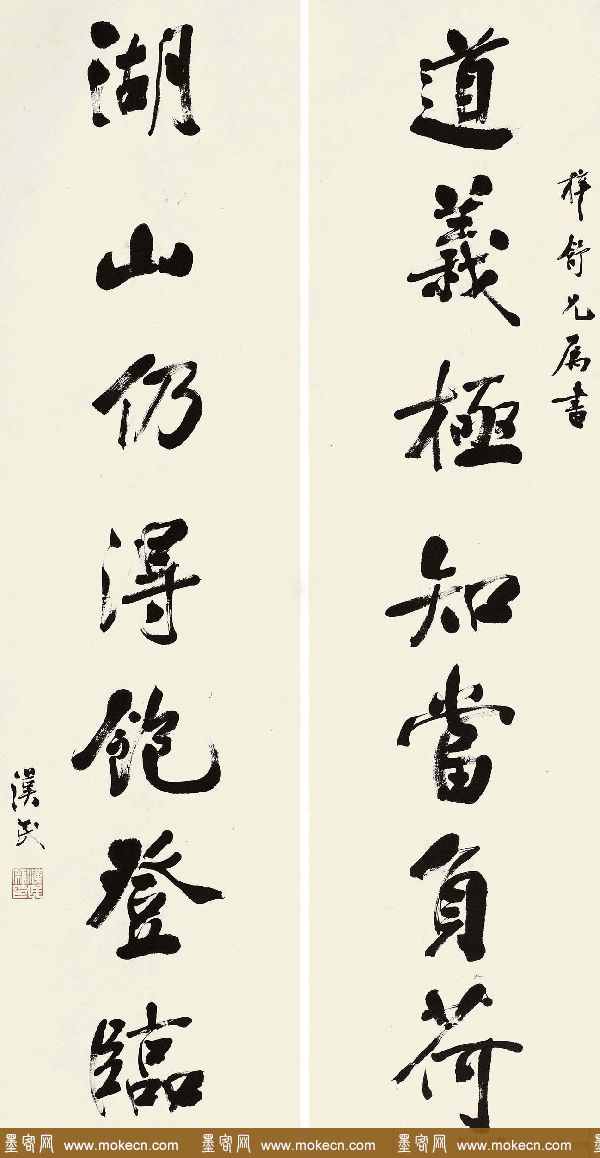 道義極知當負荷
梓舒兄属書
湖山仍得飽登臨
漢民
墨客网 www.mokecn.com 墨客网 www.mokecn.com 墨客网 www.mokecn.com